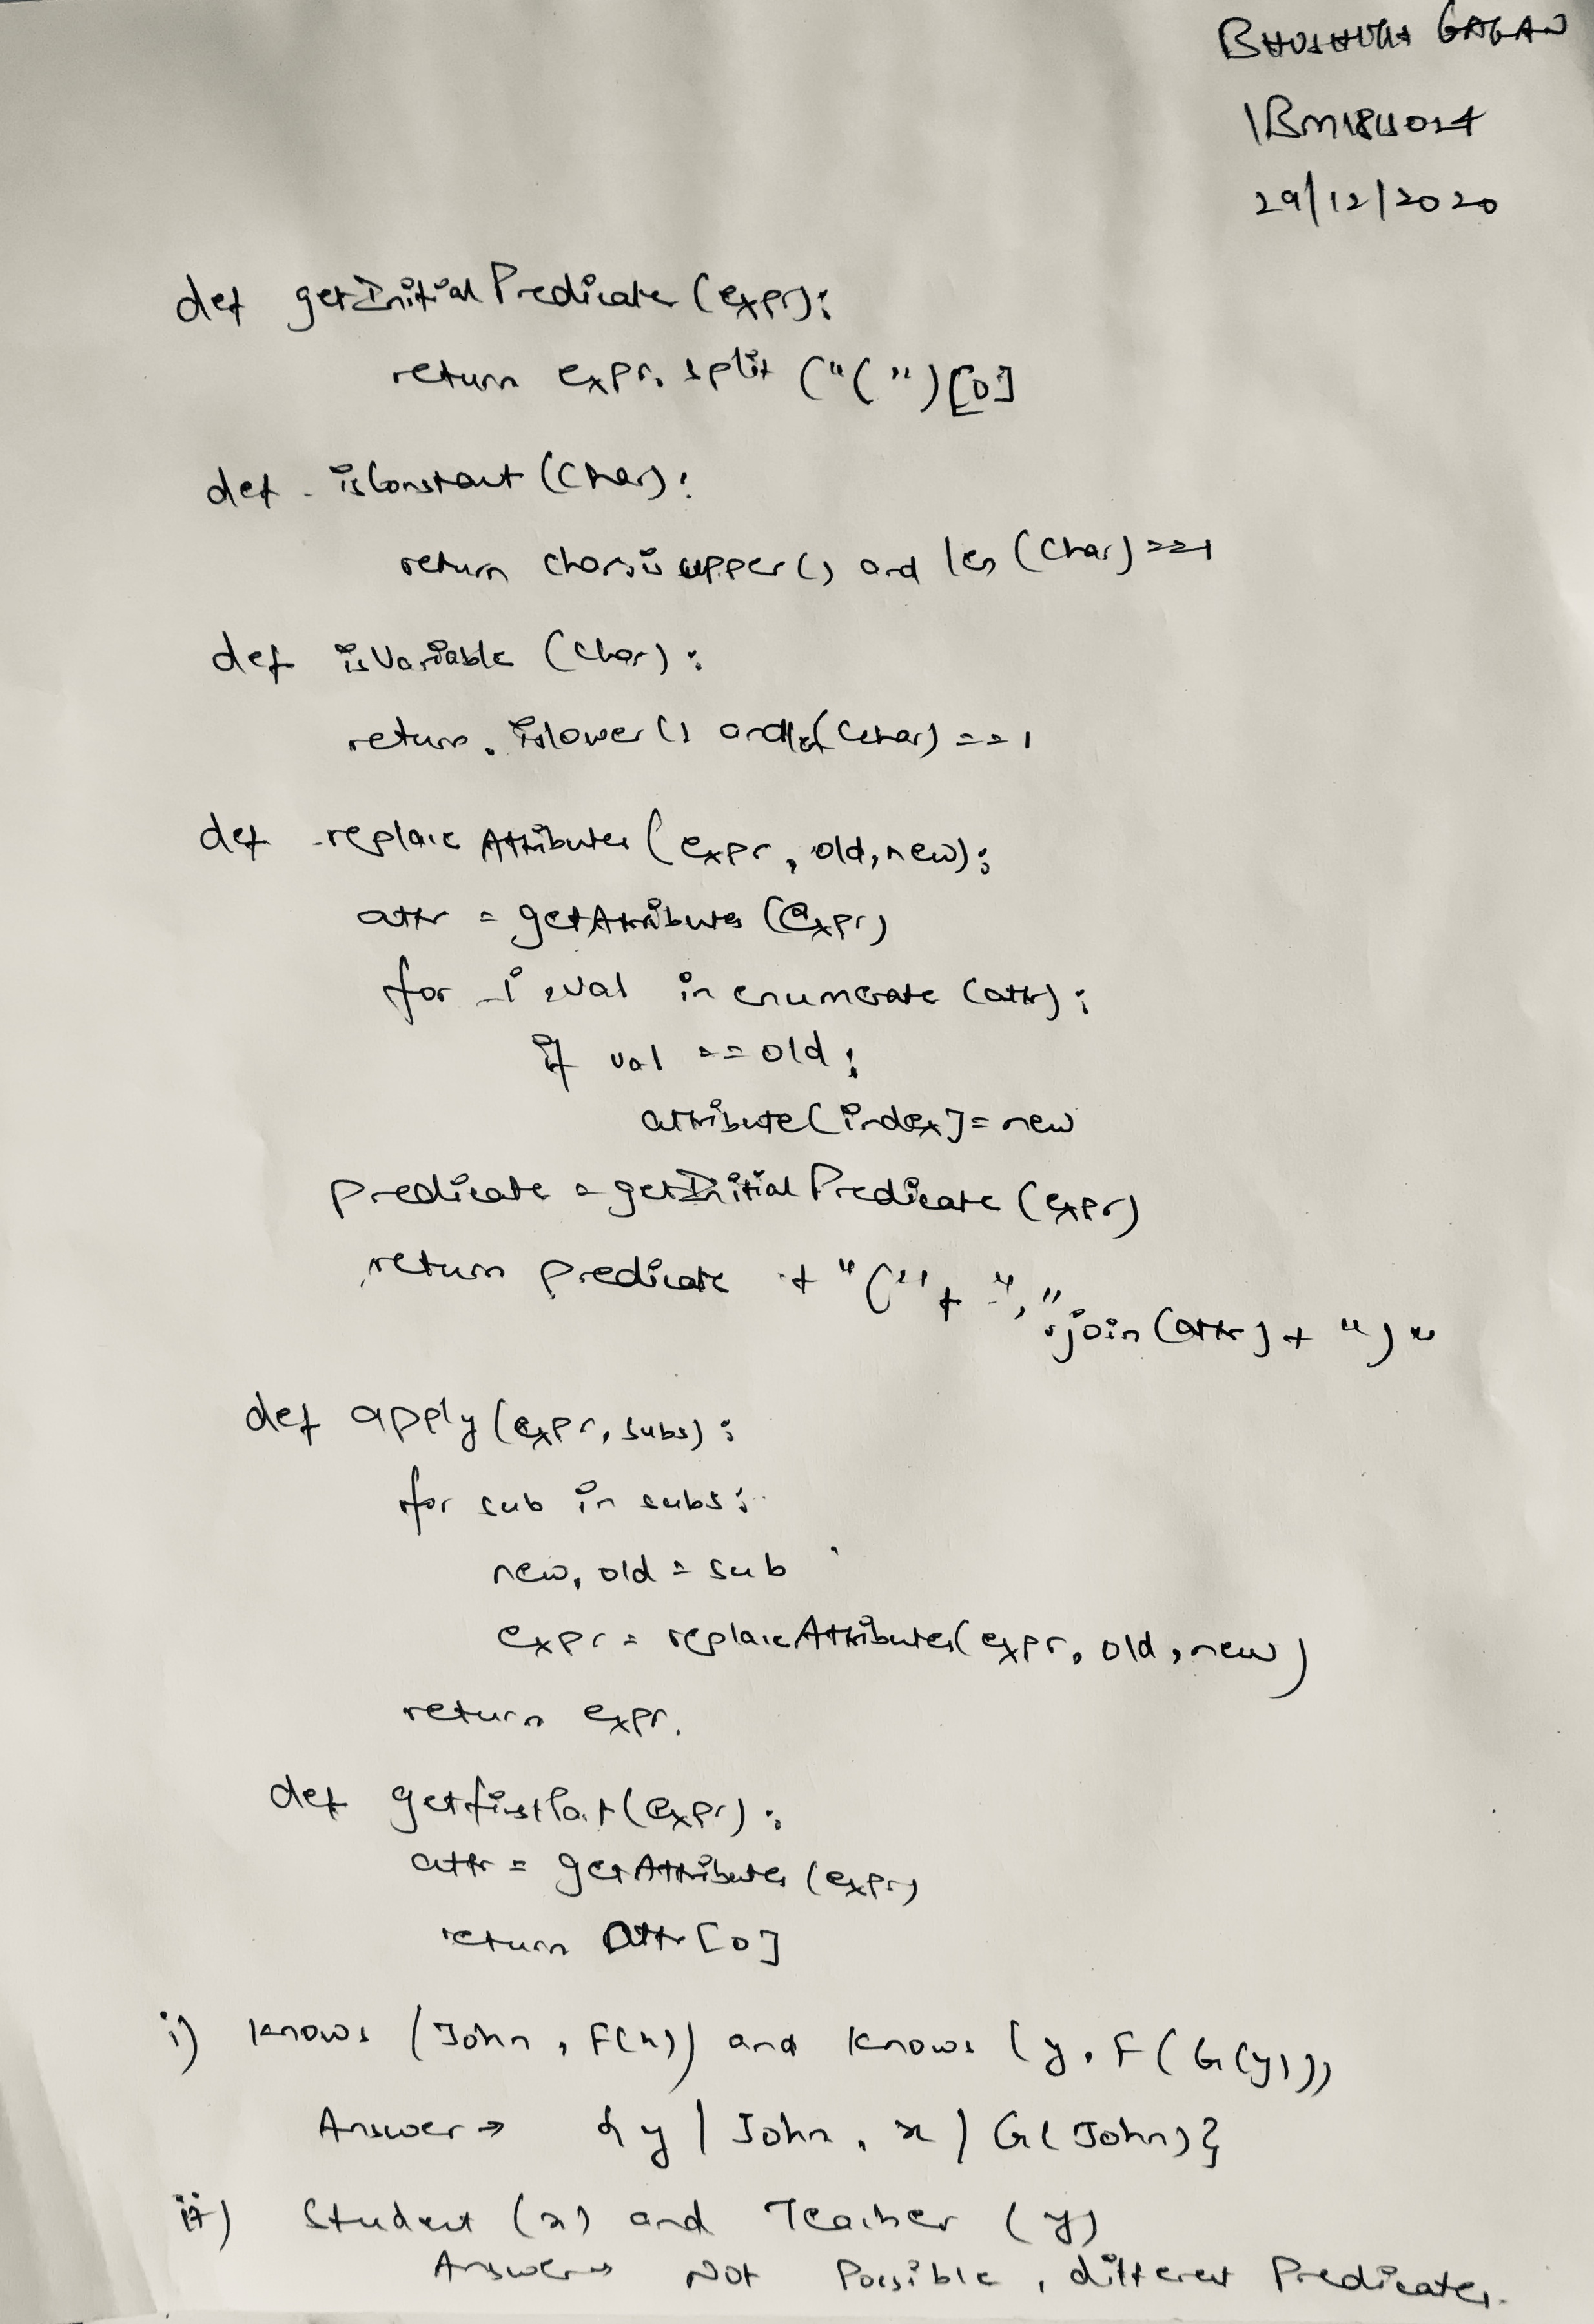 GAGAN
29/12/2020
def getInitialPredicate (expr):
return expr. split ("(")[0]
def isConstant (Char):
return char.isupper() and len (Char) ==1
def isVariable (Char):
return . islower() and len (char) ==1
def replace Attributes (expr, old, new):
attr = getAttributes (expr)
for i, val in enumerate (attr):
if val == old:
attribute[index] = new
predicate = getInitial Predicate (expr)
return predicate + "(" + ",".join (attr) + ")"
def apply (expr, subs):
for sub in subs:
new, old = sub
expr = replaceAttributes(expr, old, new)
return expr.
def getfirstPart (expr):
attr = getAttributes (expr)
return Attr [0]
i) knows (John, F(x)) and knows (y, F(G(y)))
Answer → {y / John, x / G(John)}
ii) Student (x) and Teacher (y)
Answer → Not Possible, different Predicates.